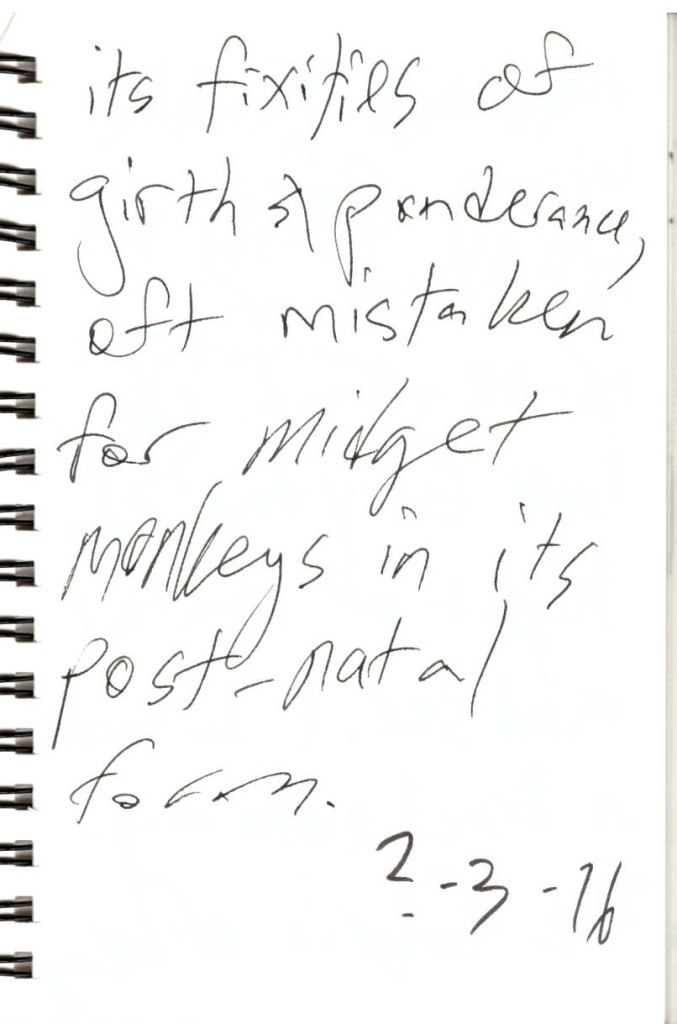 its fixities of
girth & ponderance,
oft mistaken
for midget
monkeys in its
post-natal
form.
2-3-16